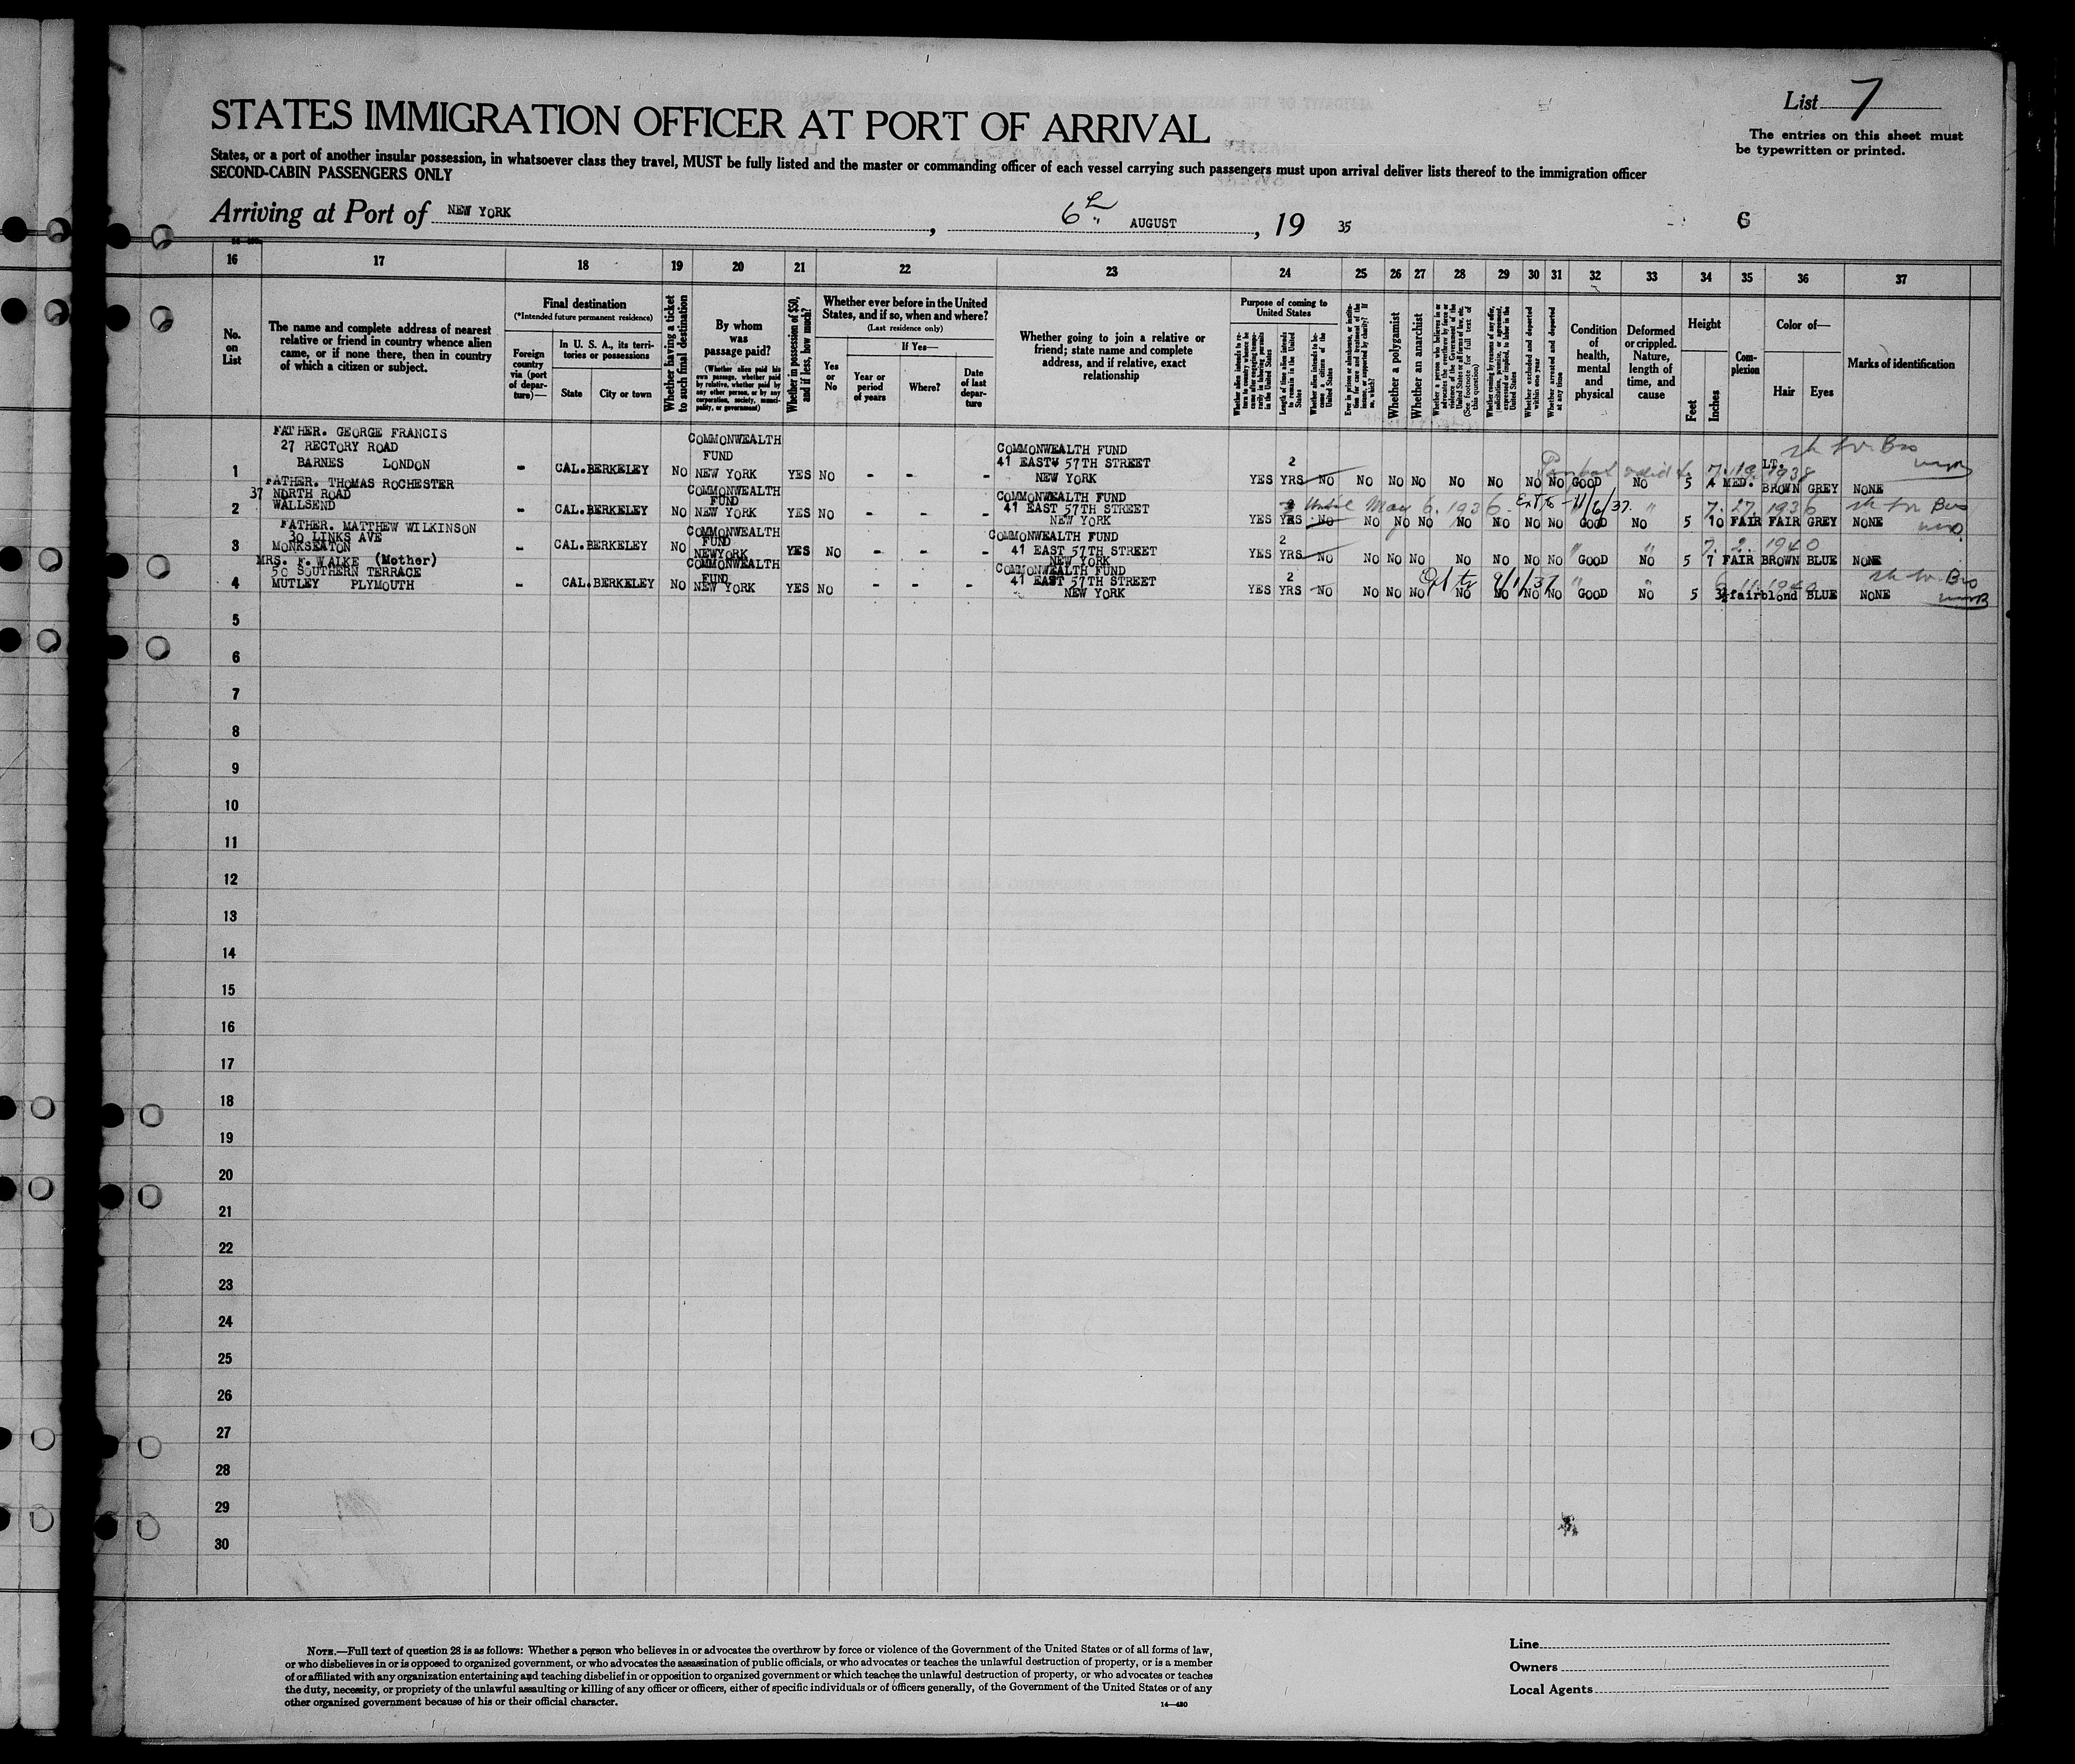 List 7
The entries on this sheet must
be typewritten or printed.
STATES IMMIGRATION OFFICER AT PORT OF ARRIVAL
States, or a port of another insular possession, in whatsoever class they travel, MUST be fully listed and the master or commanding officer of each vessel carrying such passengers must upon arrival deliver lists thereof to the immigration officer
SECOND-CABIN PASSENGERS ONLY
Arriving at Port of NEW YORK, 6th AUGUST, 19 35
6
16 17 18 19 20 21 22 23 24 25 26 27 28 29 30 31 32 33 34 35 36 37
No.
on
List
The name and complete address of nearest
relative or friend in country whence alien
came, or if none there, then in country
of which a citizen or subject.
Final destination
(*Intended future permanent residence)
Foreign
country
via (port
of depar-
ture)—
In U. S. A., its terri-
tories or possessions
State
City or town
Whether having a ticket
to such final destination
By whom
was
passage paid?
(Whether alien paid his
own passage, whether paid
by relative, whether paid by
any other person, or by any
corporation, society, munici-
pality, or government)
Whether in possession of $50,
and if less, how much?
Whether ever before in the United
States, and if so, when and where?
(Last residence only)
Yes
or
No
If Yes—
Year or
period
of years
Where?
Date
of last
depar-
ture
Whether going to join a relative or
friend; state name and complete
address, and if relative, exact
relationship
Purpose of coming to
United States
Whether alien intends to re-
turn to country whence he
came after engaging tempo-
rarily in laboring pursuits
in the United States
Length of time alien intends
to remain in the United
States
Whether alien intends to be-
come a citizen of the
United States
Ever in prison or almshouse, or institu-
tion for care and treatment of the
insane, or supported by charity? If
so, which?
Whether a polygamist
Whether an anarchist
Whether a person who believes in or
advocates the overthrow by force or
violence of the Government of the
United States or all forms of law, etc.
(See footnote for full text of
this question)
Whether coming by reasons of any offer,
solicitation, promise, or agreement,
expressed or implied, to labor in the
United States
Whether excluded and deported
within one year
Whether arrested and deported
at any time
Condition
of
health,
mental
and
physical
Deformed
or crippled.
Nature,
length of
time, and
cause
Height
Feet
Inches
Com-
plexion
Color of—
Hair
Eyes
Marks of identification
1 FATHER. GEORGE FRANCIS
27 RECTORY ROAD
BARNES LONDON
- CAL. BERKELEY NO COMMONWEALTH
FUND
NEW YORK YES NO - - -
COMMONWEALTH FUND
41 EAST 57TH STREET
NEW YORK
YES 2 YRS NO NO NO NO NO NO NO NO GOOD NO 5 4 MED. LT. BROWN GREY NONE
7. 19. 1938
2 FATHER. THOMAS ROCHESTER
37 NORTH ROAD
WALLSEND
- CAL. BERKELEY NO COMMONWEALTH
FUND
NEW YORK YES NO - - -
COMMONWEALTH FUND
41 EAST 57TH STREET
NEW YORK
Until May 6. 1936. Ext to - 11/6/37. " " 7. 27. 1936
YES YRS NO NO NO NO NO NO NO NO GOOD NO 5 10 FAIR FAIR GREY NONE
3 FATHER. MATTHEW WILKINSON
30 LINKS AVE
MONKSEATON
- CAL. BERKELEY NO COMMONWEALTH
FUND
NEWYORK YES NO - - -
COMMONWEALTH FUND
41 EAST 57TH STREET
NEW YORK
" " 7. 2. 1940
YES 2 YRS NO NO NO NO NO NO NO NO GOOD NO 5 7 FAIR BROWN BLUE NONE
4 MRS. F. WALKE (Mother)
50 SOUTHERN TERRACE
MUTLEY PLYMOUTH
- CAL. BERKELEY NO COMMONWEALTH
FUND
NEW YORK YES NO - - -
COMMONWEALTH FUND
41 EAST 57TH STREET
NEW YORK
9/1/37 " "
YES 2 YRS NO NO NO NO NO NO NO NO GOOD NO 5 3½ fair blond BLUE NONE
5
6
7
8
9
10
11
12
13
14
15
16
17
18
19
20
21
22
23
24
25
26
27
28
29
30
NOTE.—Full text of question 28 is as follows: Whether a person who believes in or advocates the overthrow by force or violence of the Government of the United States or of all forms of law,
or who disbelieves in or is opposed to organized government, or who advocates the assassination of public officials, or who advocates or teaches the unlawful destruction of property, or is a member
of or affiliated with any organization entertaining and teaching disbelief in or opposition to organized government or which teaches the unlawful destruction of property, or who advocates or teaches
the duty, necessity, or propriety of the unlawful assaulting or killing of any officer or officers, either of specific individuals or of officers generally, of the Government of the United States or of any
other organized government because of his or their official character.
14—480
Line
Owners
Local Agents